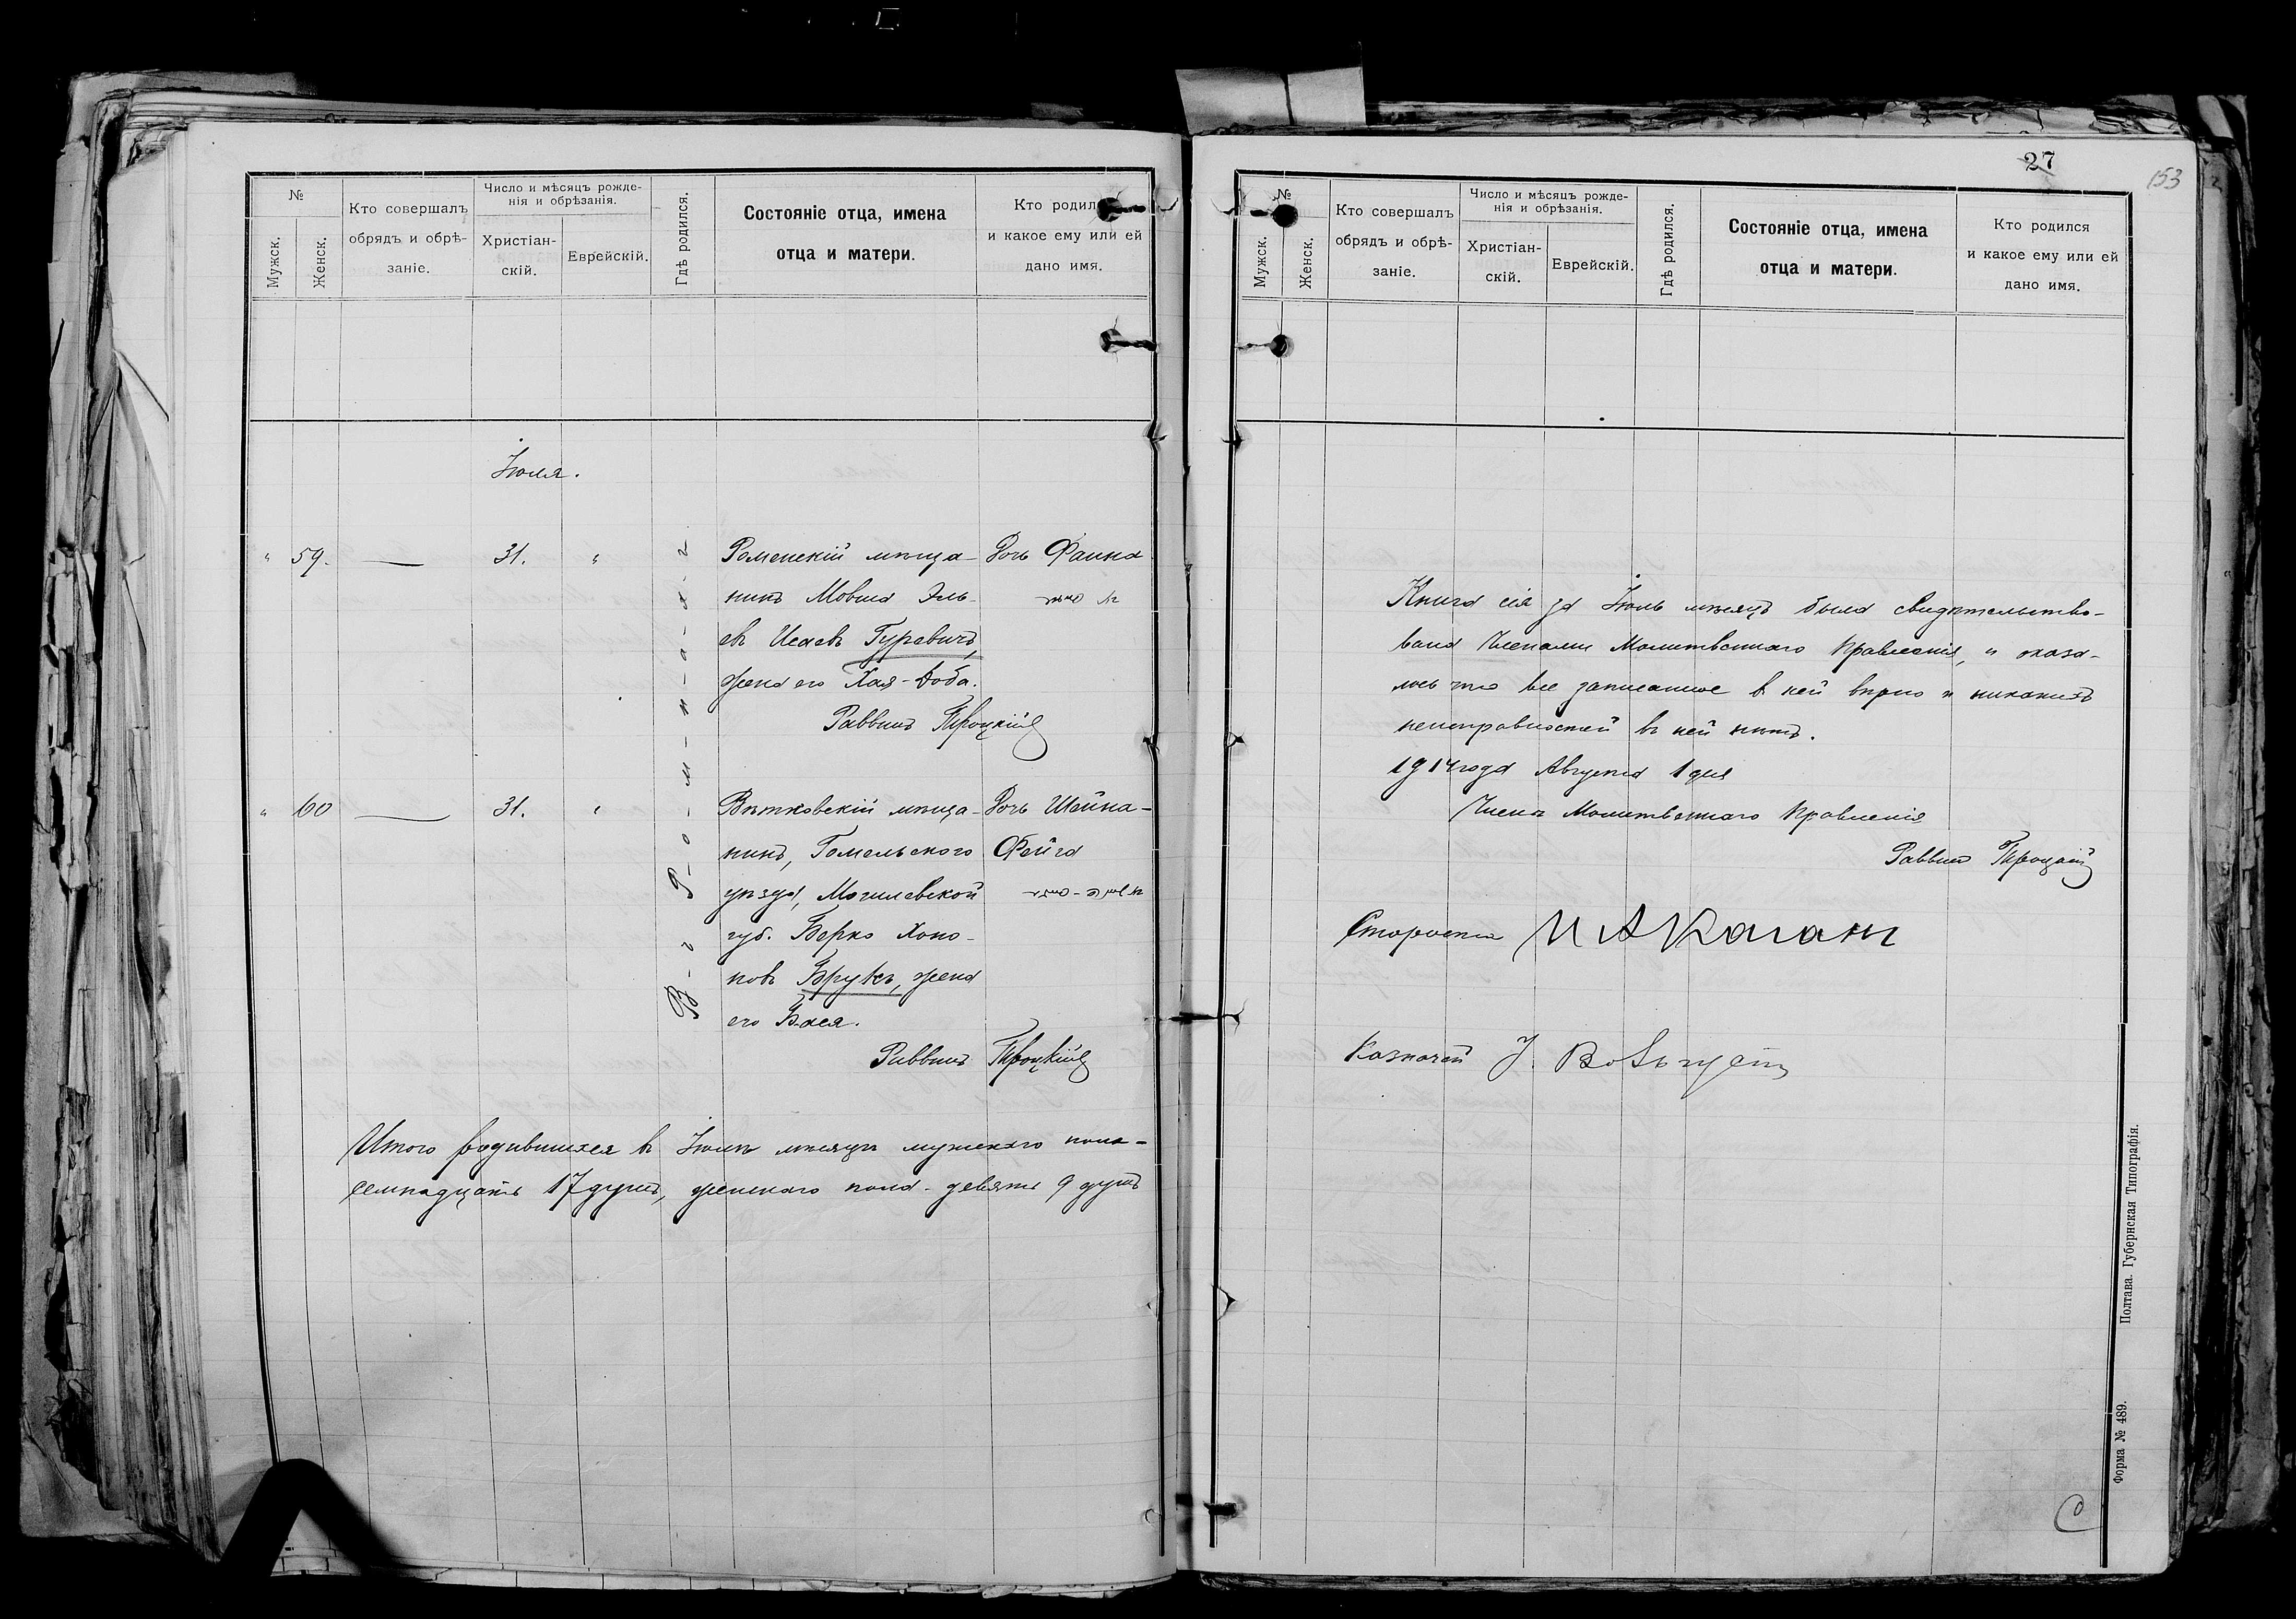 №
Мужск.
Женск.
Кто совершалъ
обрядъ и обрѣ-
заніе.
Число и мѣсяцъ рожде-
нія и обрѣзанія.
Христіан-
скій.
Еврейскій.
Гдѣ родился.
Состояніе отца, имена
отца и матери.
Кто родился
и какое ему или ей
дано имя.
Іюля.
" 59. — 31. "
Роменскій мѣща-
нинъ Мовша Эль-
евъ Исаевъ Гуревичъ,
жена его Хая-Доба.
Дочь Фаина
Раввинъ Троцкій
В г. Р-о-м-н-а-х-ъ
" 60 — 31. "
Вѣтковскій мѣща-
нинъ, Гомельскаго
уѣзда, Могилевской
губ. Берко Хоно-
новъ Брукъ, жена
его Бася.
Дочь Шейна-
Фейга
Раввинъ Троцкій
Итого родившихся въ Іюлѣ мѣсяцѣ мужского пола-
семнадцать 17 душъ, женскаго пола- девять 9 душъ
27
153
№
Мужск.
Женск.
Кто совершалъ
обрядъ и обрѣ-
заніе.
Число и мѣсяцъ рожде-
нія и обрѣзанія.
Христіан-
скій.
Еврейскій.
Гдѣ родился.
Состояніе отца, имена
отца и матери.
Кто родился
и какое ему или ей
дано имя.
Книга сія за Іюль мѣсяцъ была свидѣтельство-
вана Членами Молитвеннаго Правленія, и оказа-
лось что все записанное въ ней вѣрно и никакихъ
неисправностей въ ней нѣтъ.
1914 года Августа 1 дня
Члены Молитвеннаго Правленія
Раввинъ Троцкій
Староста И А Каганъ
Казначей
Полтава. Губернская Типографія.
Форма № 489.